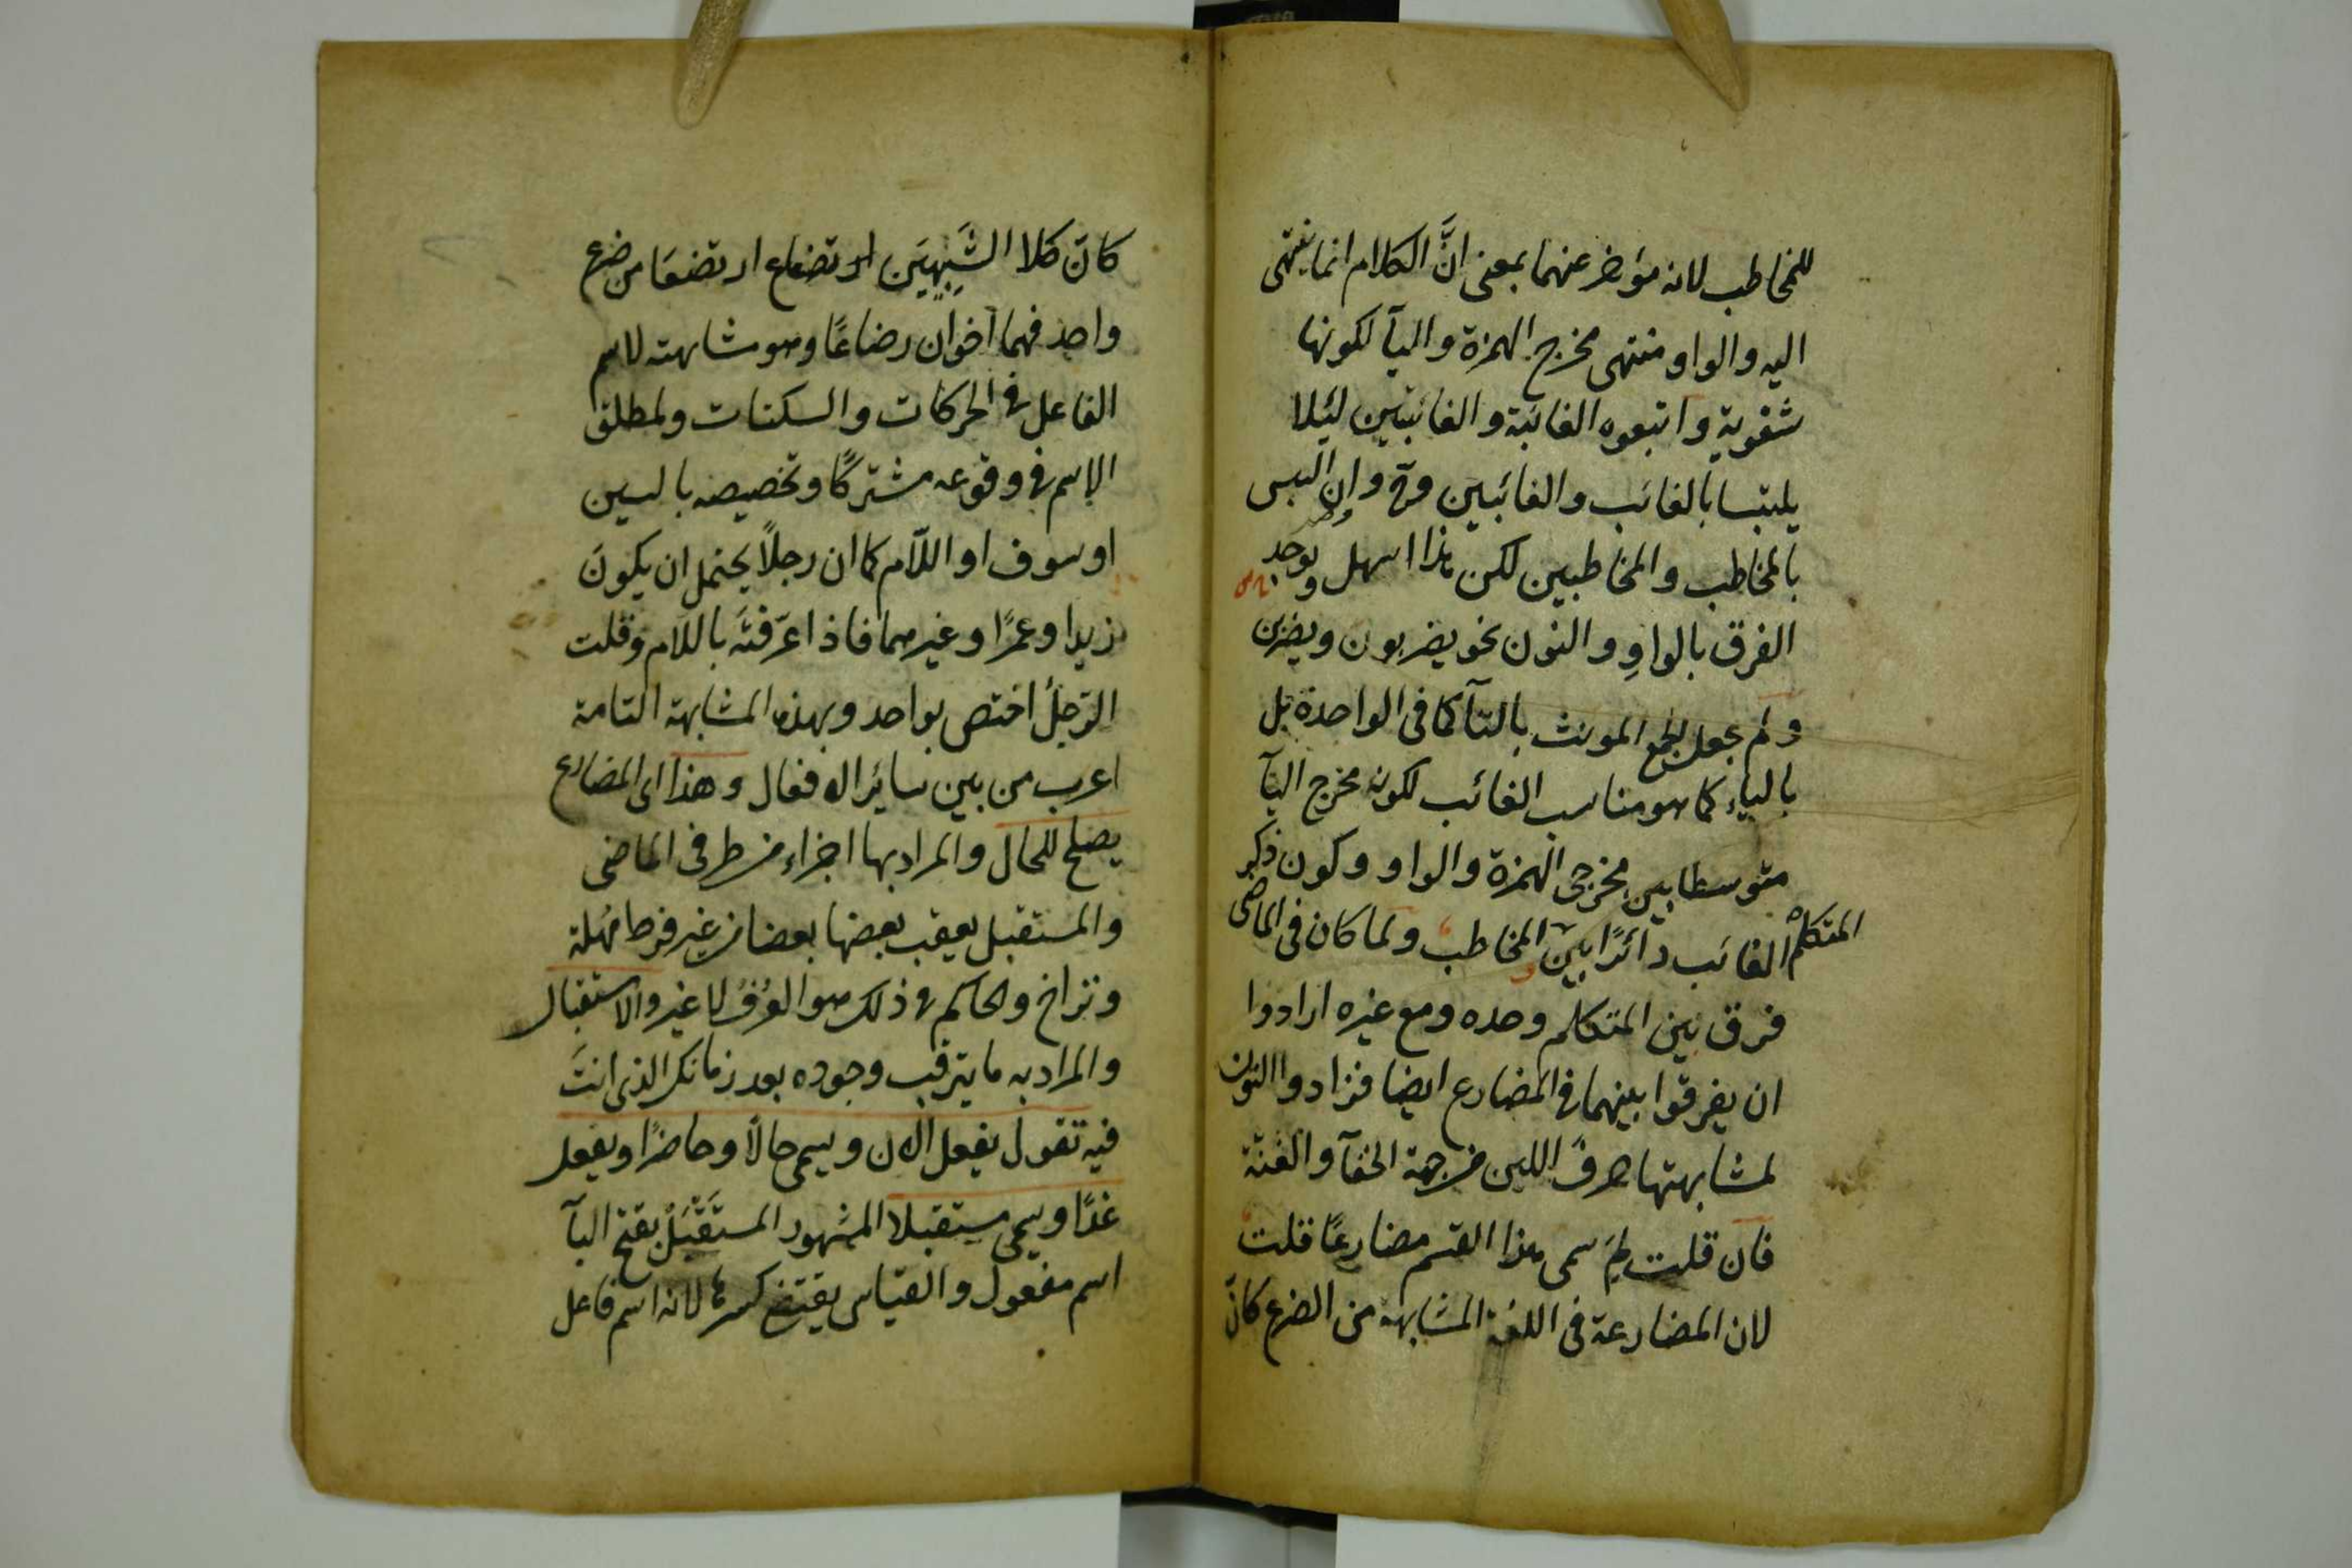 للمخاطب لانه مؤخر عنهما بمعنى انَّ الكلام انما ينتهى
اليه والواو منتهى مخرج الهمزة واليآ لكونها
شفوية واتبعوه الغائبة والغائبتين لئلا
يلتبسا بالغائب والغائبين وان التبس
بالمخاطب والمخاطبين لكن هذا اسهل ويوجد
الفرق بالواوِ والنون نحو يضربون ويضربن
ولم يجعل لجمع المونث بالتآ كما فى الواحدة بل
بالياء كما هو مناسب الغائب لكون مخرج اليآ
متوسطا بين مخرجى الهمزة والواو وكون ذكر
الغائب دائرًا بين المتكلم والمخاطب ولما كان فى الماضى
فرق بين المتكلم وحده ومع غيره ارادوا
ان يفرقوا بينهما فى المضارع ايضا فزادوا النون
لمشابهتها حرف اللين من جهة الخفآ والغنّة
فان قلت لِمَ سمى هذا القسم مضارعًا قلت
لان المضارعة فى اللغة المشابهة من الضرع كانّ
كانَ كلا الشَبِيهَين ارتضعا من ضرع
واحد فهما اخوان رضاعًا وهو مشابهته لاسم
الفاعل فى الحركات والسكنات ولمطلق
الاسم فى وقوعه مشتركًا وتخصيصه بالسين
او سوف او اللّام كما ان رجلاً يحتمل ان يكونَ
زيدا وعمرًا وغيرهما فاذا عرّفتَه باللام وقلت
الرّجلُ اختص بواحد وبهذه المشابهة التامة
اعرب من بين سائر الافعال وهذا اى المضارع
يصلح للحال والمراد بها اجزاء من طرفى الماضى
والمستقبل يعقب بعضها بعضا من غير فرط مُهلة
وتراخ والحاكم فى ذلك هو العُرْفُ لا غير والاستقبال
والمراد به ما يترقب وجوده بعد زمانك الذى انتَ
فيه تقول يفعل الان ويسمى حالًا وحاضرًا ويفعل
غدًا ويسمى مستقبلا المشهور المستَقْبَلُ بفتح البآ
اسم مفعول والقياس يقتضى كسرها لانه اسم فاعل